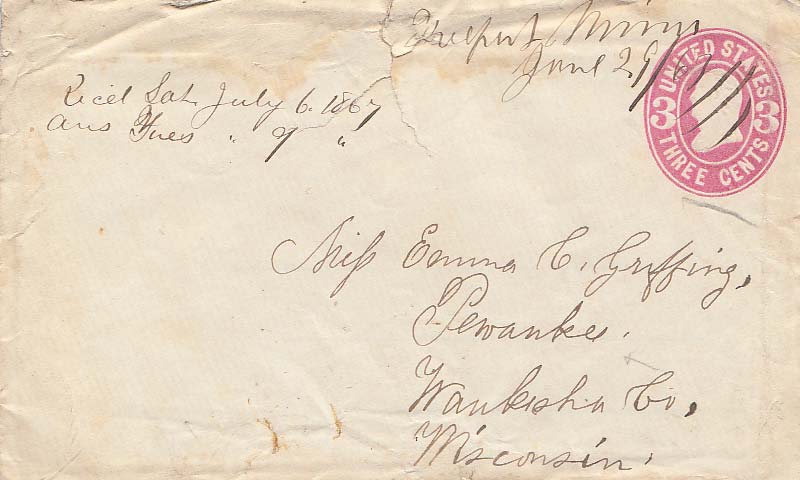 Freeport Minn
June 29/67
Recd Sat July 6. 1867
ans Tues " 9 "
UNITED STATES
3 3
THREE CENTS
Miss Emma C. Griffing,
Pewaukee.
Waukesha Co,
Wisconsin.